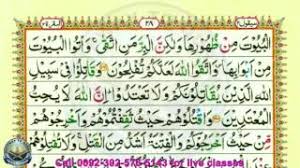 سيقول ٢ البقرة ٢
الْبُيُوْتَ مِنْ ظُهُوْرِهَا وَلٰكِنَّ الْبِرَّ مَنِ اتَّقٰى ۚ وَاْتُوا الْبُيُوْتَ
مِنْ اَبْوَابِهَا وَاتَّقُوا اللّٰهَ لَعَلَّكُمْ تُفْلِحُوْنَ وَقَاتِلُوْا فِيْ سَبِيْلِ
اللّٰهِ الَّذِيْنَ يُقَاتِلُوْنَكُمْ وَلَا تَعْتَدُوْا اِنَّ اللّٰهَ لَا يُحِبُّ
الْمُعْتَدِيْنَ وَاقْتُلُوْهُمْ حَيْثُ ثَقِفْتُمُوْهُمْ وَاَخْرِجُوْهُمْ
مِّنْ حَيْثُ اَخْرَجُوْكُمْ وَالْفِتْنَةُ اَشَدُّ مِنَ الْقَتْلِ ۚ وَلَا تُقٰتِلُوْهُمْ
Call for live classes